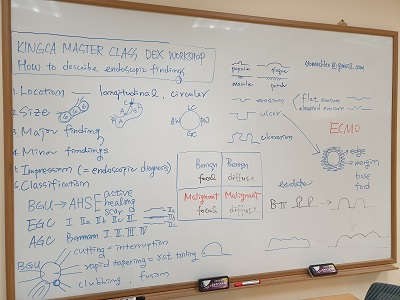 KINGCA MASTER CLASS DEX WORKSHOP
How to describe endoscopic findings
1. Location — longitudinal, circular
2. Size
3. Major finding
4. Minor findings
5. Impression (= endoscopic diagnosis)
6. Classification
BGU → AHS active
healing
scar
EGC I IIa IIb IIc III
AGC Borrmann I II III IV V
cutting = interruption
BGU rapid tapering = rat tailing
clubbing, fusion
AW PW
Benign focal
Benign diffuse
Malignant focus
Malignant diffuse
papule plaque
macule patch
erosions flat erosion
elevated erosion
ulcer
ulceration
ECMO
edge
margin
base
fold
exudate
B-II